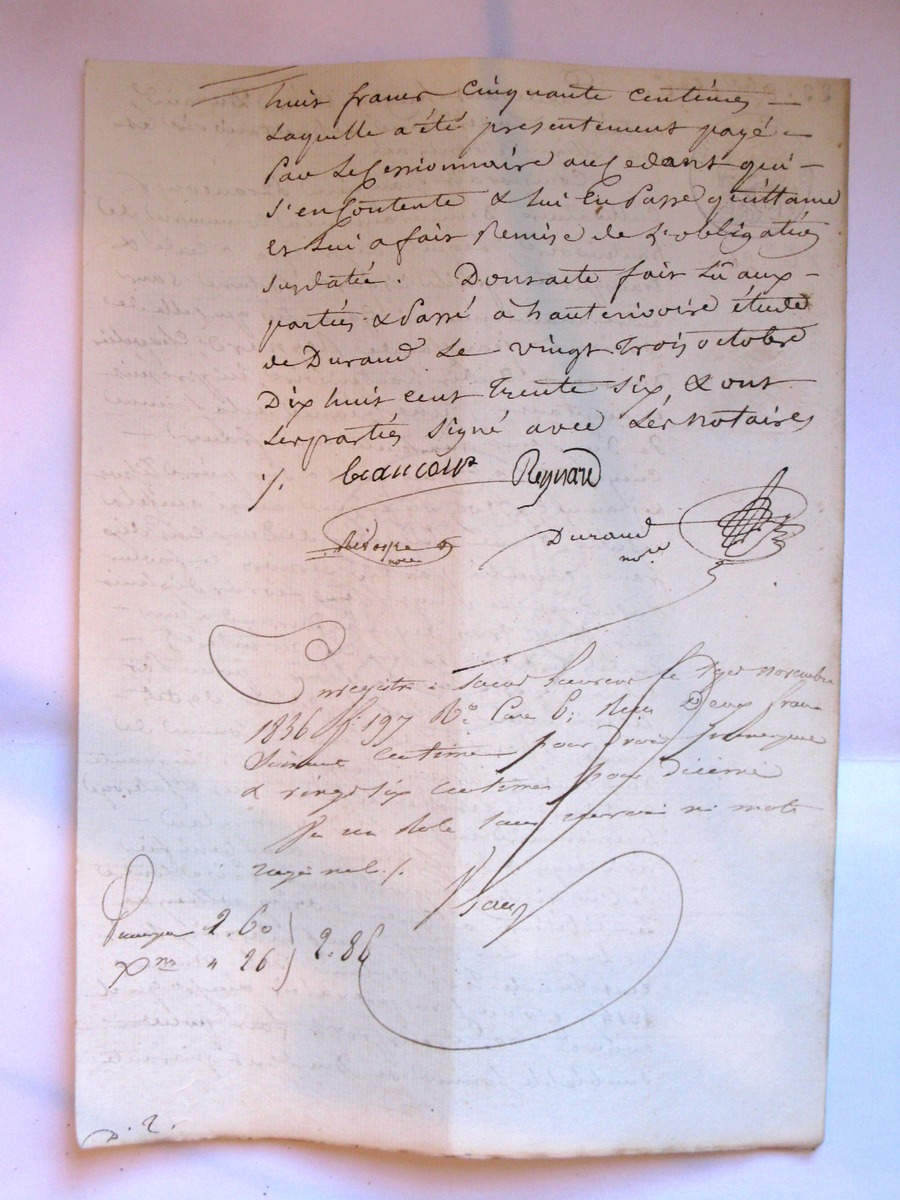 huit francs cinquante centimes —
Laquelle a été presentement payé =
Par Le Cessionnaire au Cedant qui —
s'en Contente & lui En Passe quittance
et Lui a fait Remise de L'obligation
susdatée. Dont acte fait Lû aux —
parties & Passé à hauterivoire étude
de Durand Le vingt Trois octobre
Dix huit cent Trente six, & ont
Les parties signé avec Les Notaires
./. beaucoup Reynard
nore Durand
nore
Enregistré à Saint Laurent le novembre
1836 fo 197 Ro Case 6; Reçu Deux francs
soixante centimes pour Droit
& vingt six centimes pour Décime
un Role sans renvoi ni mots
rayé nul ./.
2.60
Xme " 26 2.86
D. 2.